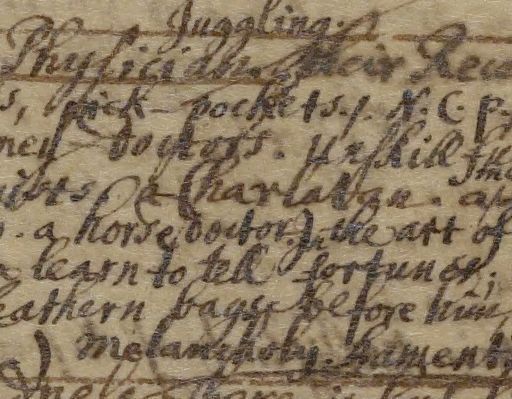 Juggling.
Physician their Rev
s, pick-pockets. N. C. p.
ney doctors. unskill
a Charlatan. a
. a horse doctor. the art of
learn to tell fortunes,
eathern bags before him
Melancholy. Lament